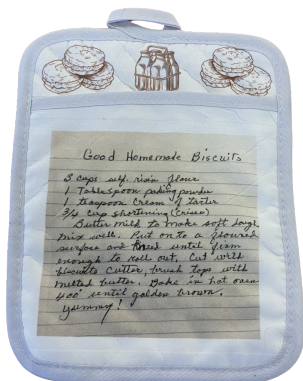 Good Homemade Biscuits
3 cups self risin flour
1 Tablespoon baking powder
1 teaspoon Cream of tarter
3/4 cup shortening (crisco)
Butter milk to make soft dough
mix well. Put onto a floured
surface and knead until firm
enough to roll out. Cut with
biscuits cutter, brush tops with
melted butter. Bake in hot oven
400° until golden brown.
Yummy!